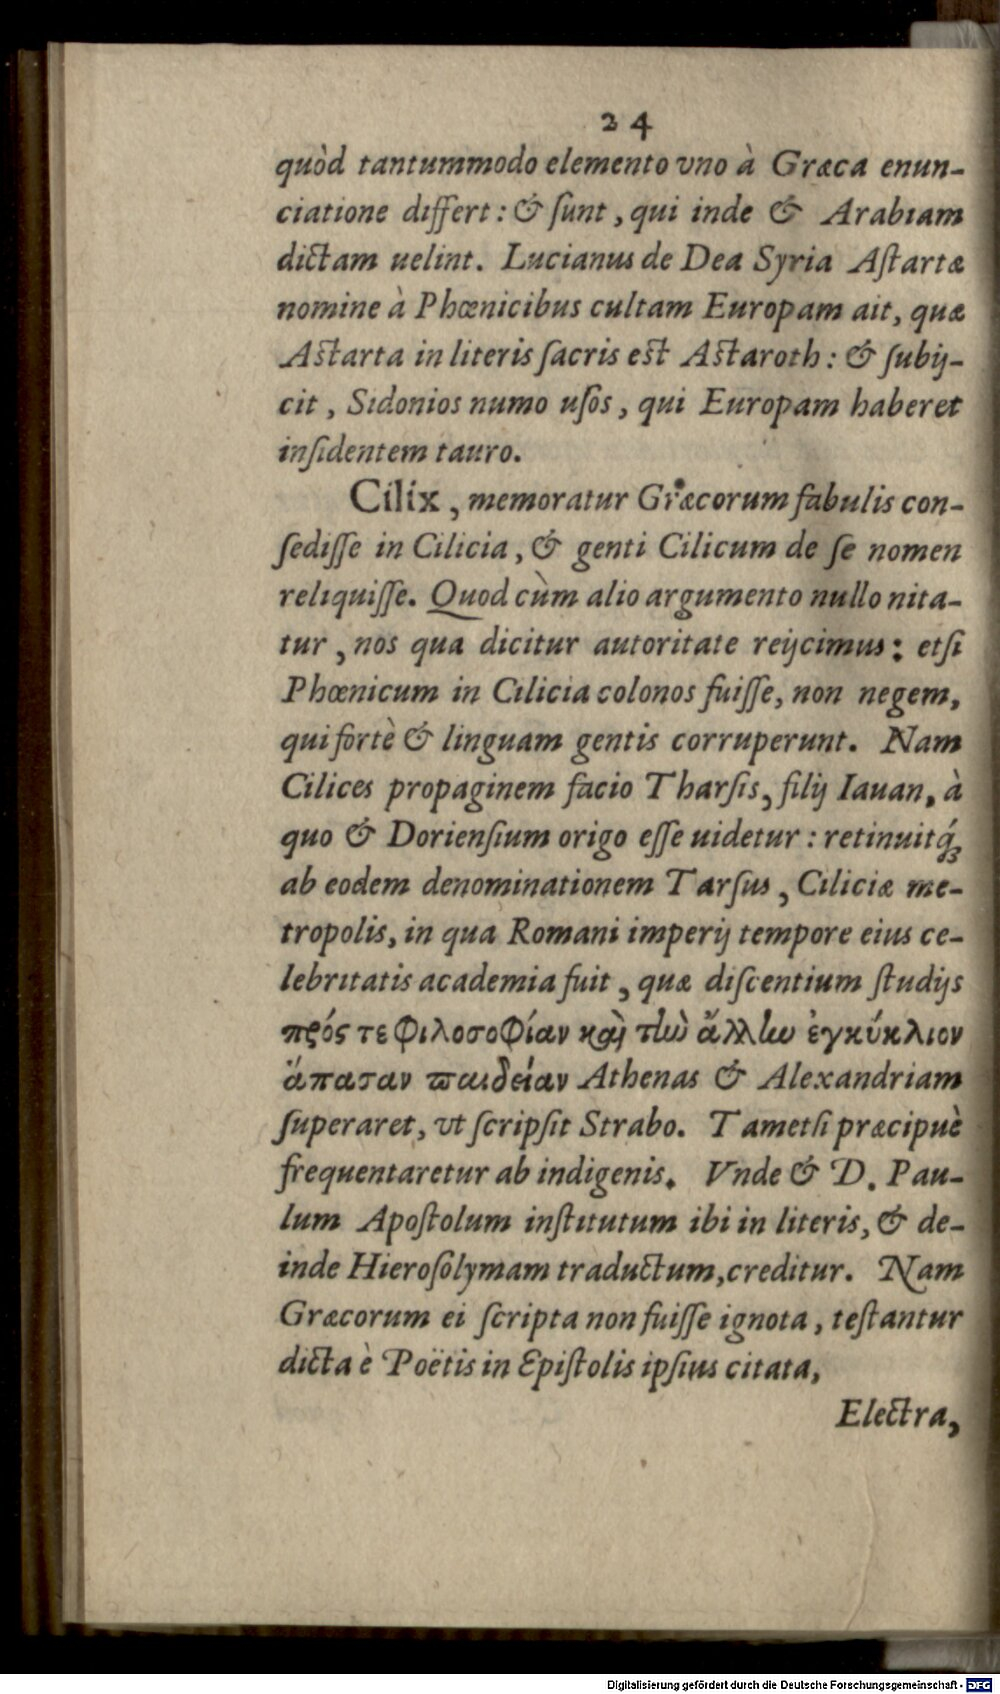 24
quòd tantummodo elemento vno à Græca enun-
ciatione differt: & ſunt, qui inde & Arabiam
dictam uelint. Lucianus de Dea Syria Aſtartæ
nomine à Phœnicibus cultam Europam ait, quæ
Aſtarta in literis ſacris eſt Aſtaroth: & ſubij-
cit, Sidonios numo uſos, qui Europam haberet
inſidentem tauro.
Cilix, memoratur Græcorum fabulis con-
ſediſſe in Cilicia, & genti Cilicum de ſe nomen
reliquiſſe. Quod cùm alio argumento nullo nita-
tur, nos qua dicitur autoritate reijcimus: etſi
Phœnicum in Cilicia colonos fuiſſe, non negem,
qui fortè & linguam gentis corruperunt. Nam
Cilices propaginem facio Tharſis, filij Iauan, à
quo & Dorienſium origo eſſe uidetur: retinuitq́ꝫ
ab eodem denominationem Tarſus, Ciliciæ me-
tropolis, in qua Romani imperij tempore eius ce-
lebritatis academia fuit, quæ diſcentium ſtudijs
πρός τε φιλοσοφίαν καὶ τὴν ἄλλην ἐγκύκλιον
ἅπασαν παιδείαν Athenas & Alexandriam
ſuperaret, vt ſcripſit Strabo. Tametſi præcipuè
frequentaretur ab indigenis. Vnde & D. Pau-
lum Apoſtolum inſtitutum ibi in literis, & de-
inde Hieroſolymam traductum, creditur. Nam
Græcorum ei ſcripta non fuiſſe ignota, teſtantur
dicta è Poëtis in Epiſtolis ipſius citata,
Electra,
Digitalisierung gefördert durch die Deutsche Forschungsgemeinschaft - DFG